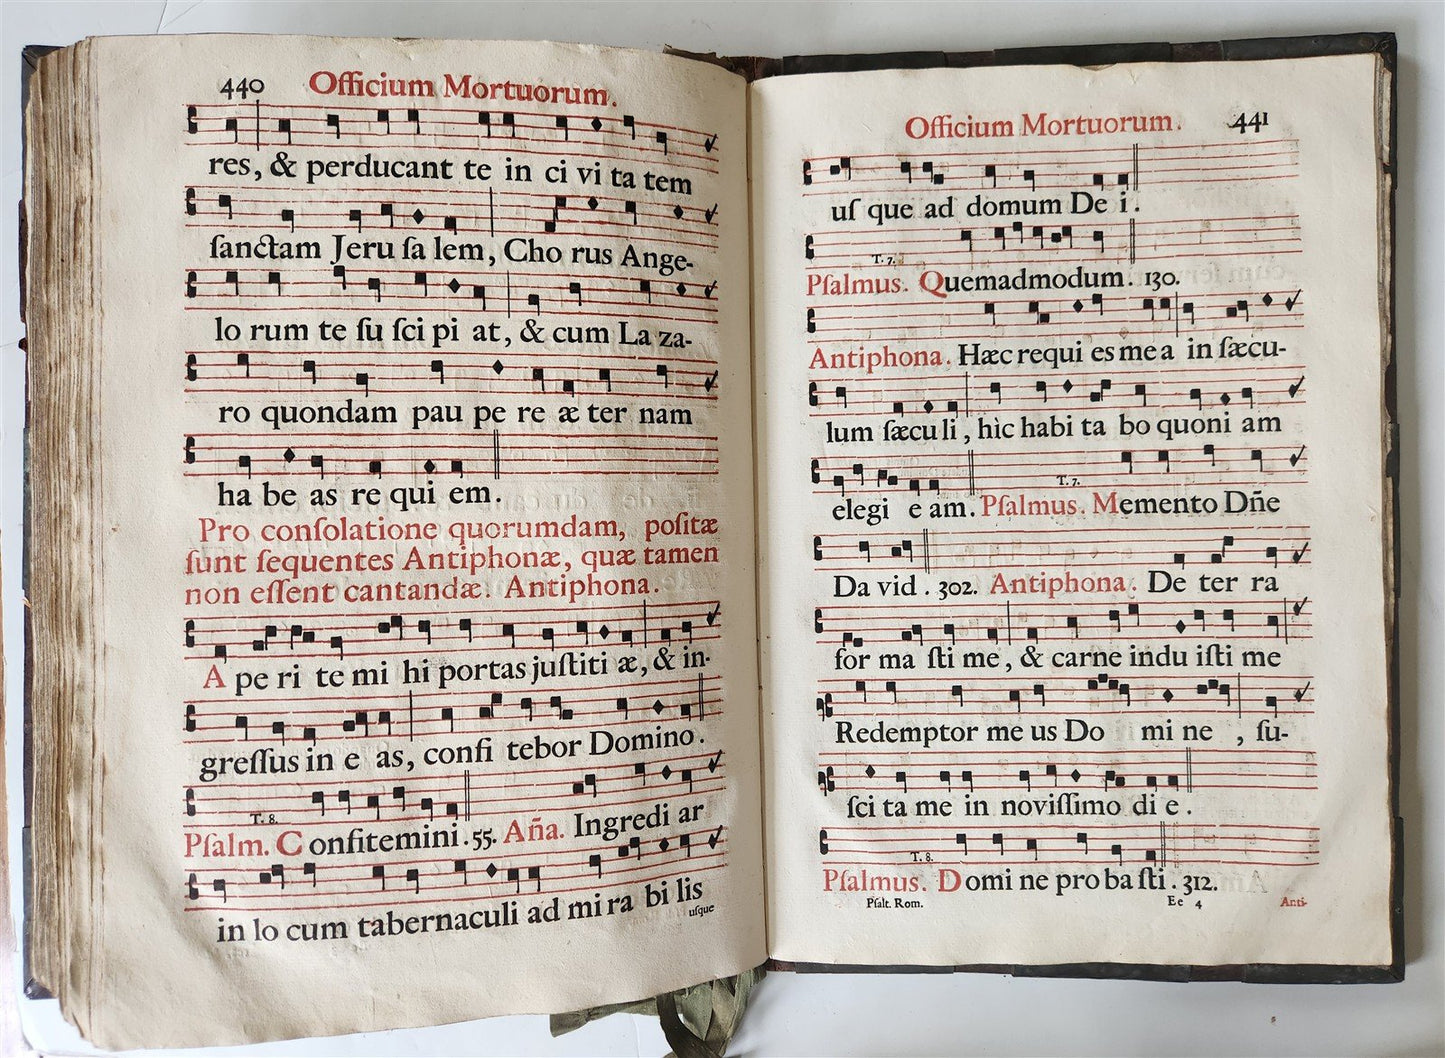 440 Officium Mortuorum.
res, & perducant te in ci vi ta tem
ſanctam Jeru ſa lem, Cho rus Ange-
lo rum te ſu ſci pi at, & cum La za-
ro quondam pau pe re æ ter nam
ha be as re qui em.
Pro conſolatione quorumdam, poſitæ
ſunt ſequentes Antiphonæ, quæ tamen
non eſſent cantandæ. Antiphona.
A pe ri te mi hi portas juſtiti æ, & in-
greſſus in e as, confi tebor Domino.
T. 8.
Pſalm. C onfitemini. 55. Aña. Ingredi ar
in lo cum tabernaculi ad mi ra bi lis
uſque
Officium Mortuorum. 441
uſ que ad domum De i.
T. 7.
Pſalmus. Quemadmodum. 130.
Antiphona. Hæc requi es me a in ſæcu-
lum ſæcu li, hìc habi ta bo quoni am
T. 7.
elegi e am. Pſalmus. Memento Dñe
Da vid. 302. Antiphona. De ter ra
for ma ſti me, & carne indu iſti me
Redemptor me us Do mi ne, ſu-
ſci ta me in noviſſimo di e.
T. 8.
Pſalmus. Domi ne pro ba ſti. 312.
Pſalt. Rom. Ee 4 Anti-